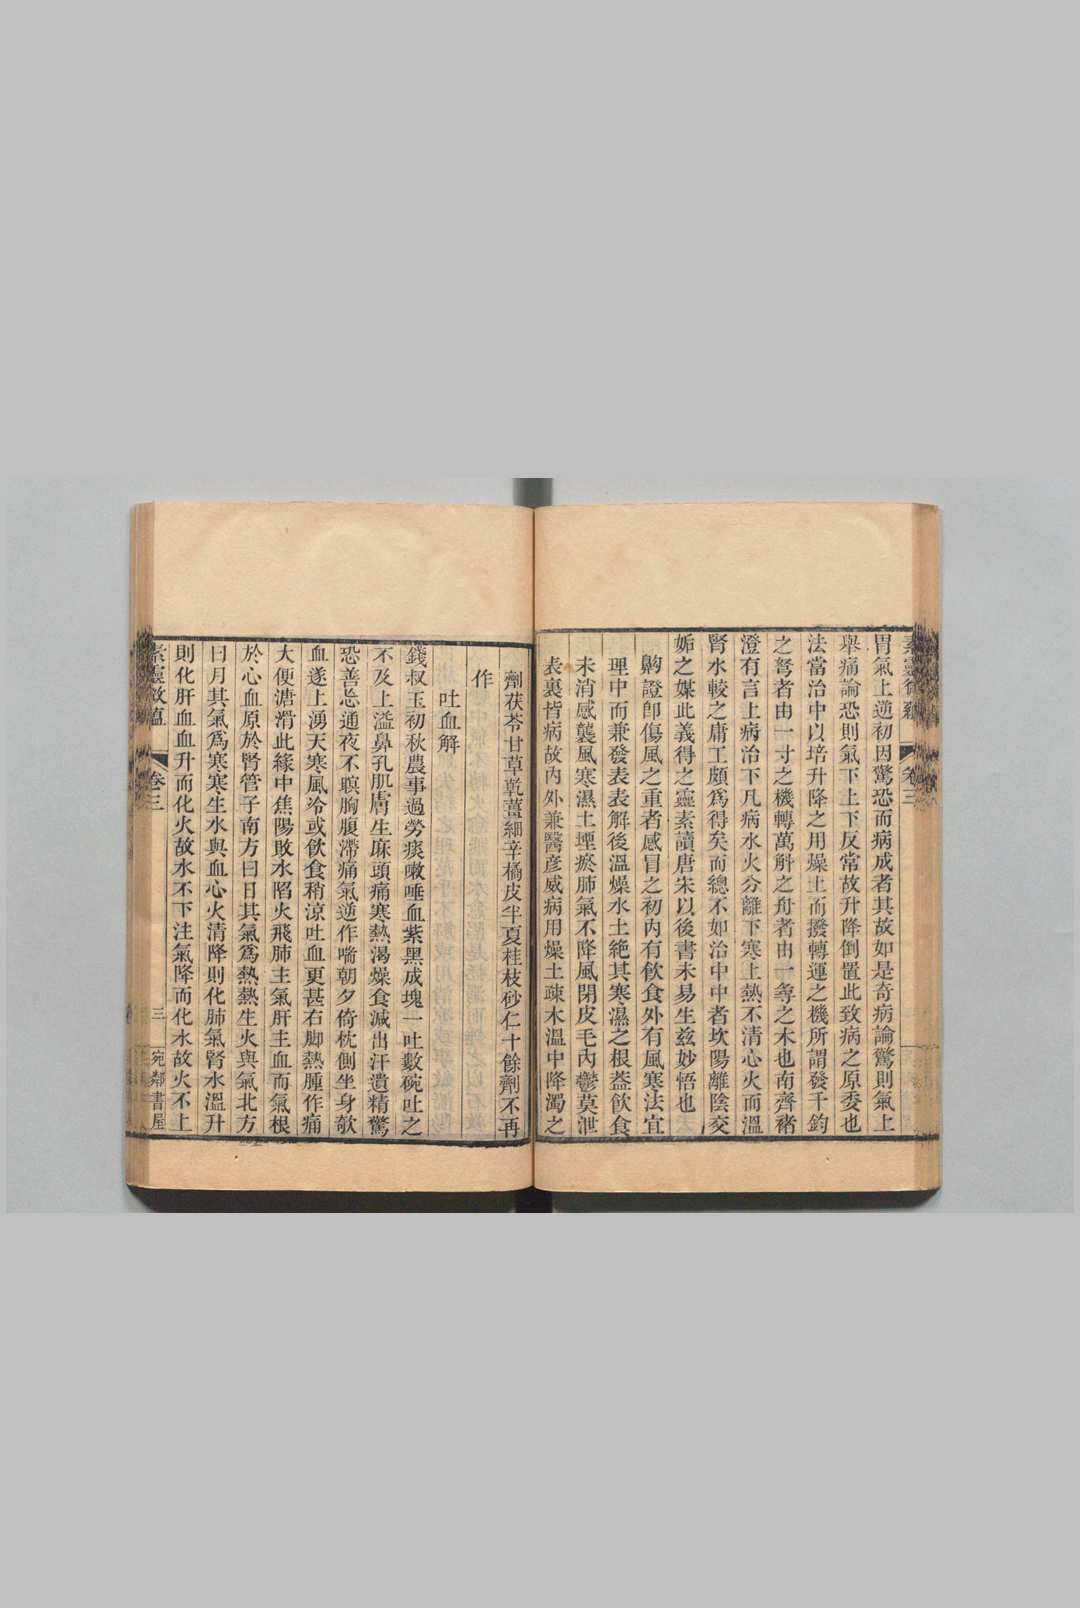 素靈微蘊 卷三
胃氣上逆初因驚恐而病成者其故如是奇病論驚則氣上
舉痛論恐則氣下上下反常故升降倒置此致病之原委也
法當治中以培升降之用燥土而撥轉運之機所謂發千鈞
之弩者由一寸之機轉萬斛之舟者由一尋之木也南齊褚
澄有言上病治下凡病水火分離下寒上熱不清心火而溫
腎水較之庸工頗爲得矣而總不如治中中者坎陽離陰交
姤之媒此義得之靈素讀唐宋以後書未易生茲妙悟也
齁證卽傷風之重者感冒之初內有飮食外有風寒法宜
理中而兼發表表解後溫燥水土絶其寒濕之根葢飮食
未消感襲風寒濕土堙瘀肺氣不降風閉皮毛內鬱莫泄
表裏皆病故內外兼醫彦威病用燥土疎木溫中降濁之
劑茯苓甘草乾薑細辛橘皮半夏桂枝砂仁十餘劑不再
作
吐血解
錢叔玉初秋農事過勞痰嗽唾血紫黑成塊一吐數碗吐之
不及上溢鼻孔肌膚生麻頭痛寒熱渴燥食減出汗遺精驚
恐善忘通夜不瞑胸腹滯痛氣逆作喘朝夕倚枕側坐身欹
血遂上湧天寒風冷或飮食稍涼吐血更甚右脚熱腫作痛
大便溏滑此緣中焦陽敗水陷火飛肺主氣肝主血而氣根
於心血原於腎管子南方曰日其氣爲熱熱生火與氣北方
曰月其氣爲寒寒生水與血心火清降則化肺氣腎水溫升
則化肝血血升而化火故水不下注氣降而化水故火不上
素靈微蘊 卷三 三 宛鄰書屋